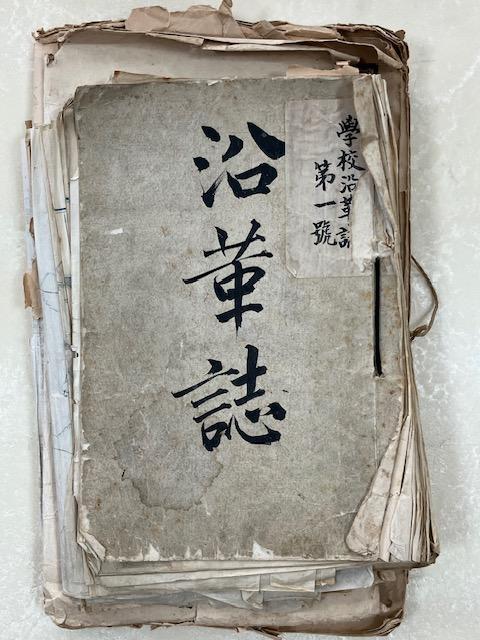 學校沿革誌
第一號
沿革誌